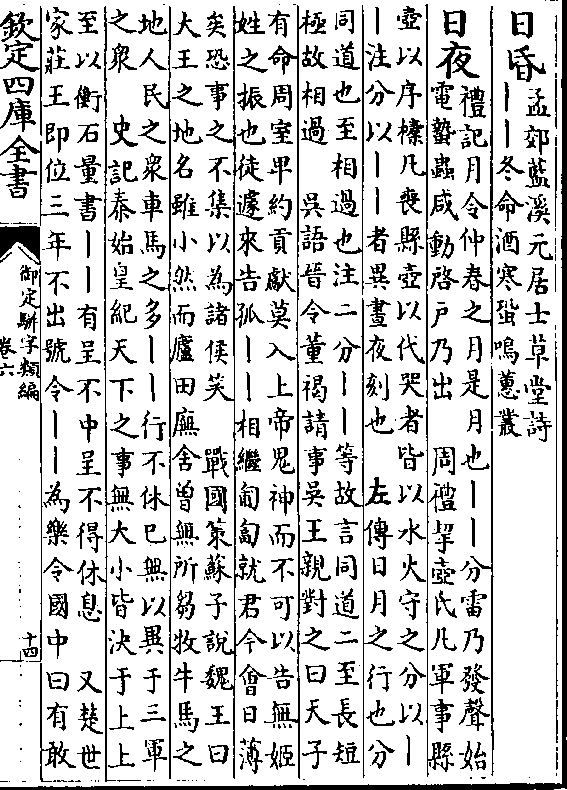 日昏孟郊藍溪元居士草堂詩
｜｜冬命酒寒蛩鳴蕙叢
日夜禮記月令仲春之月是月也｜｜分雷乃發聲始
電蟄蟲咸動啓户乃出　周禮挈壺氏凡軍事縣
壺以序㯿凡喪縣壺以代哭者皆以水火守之分以｜
｜注分以｜｜者異晝夜刻也　左傳日月之行也分
同道也至相過也注二分｜｜等故言同道二至長短
極故相過　吳語晉令董褐請事吳王親對之曰天子
有命周室卑約貢獻莫入上帝鬼神而不可以告無姬
姓之振也徒遽來告孤｜｜相繼匍匐就君今會日薄
矣恐事之不集以為諸侯笑　戰國策蘇子說魏王曰
大王之地名雖小然而廬田廡舍曽無所芻牧牛馬之
地人民之衆車馬之多｜｜行不休已無以異于三軍
之衆　史記秦始皇紀天下之事無大小皆決于上上
至以衡石量書｜｜有呈不中呈不得休息　又楚世
家莊王即位三年不出號令｜｜為樂令國中曰有敢
欽定四庫全書
御定駢字類編
卷六
十四